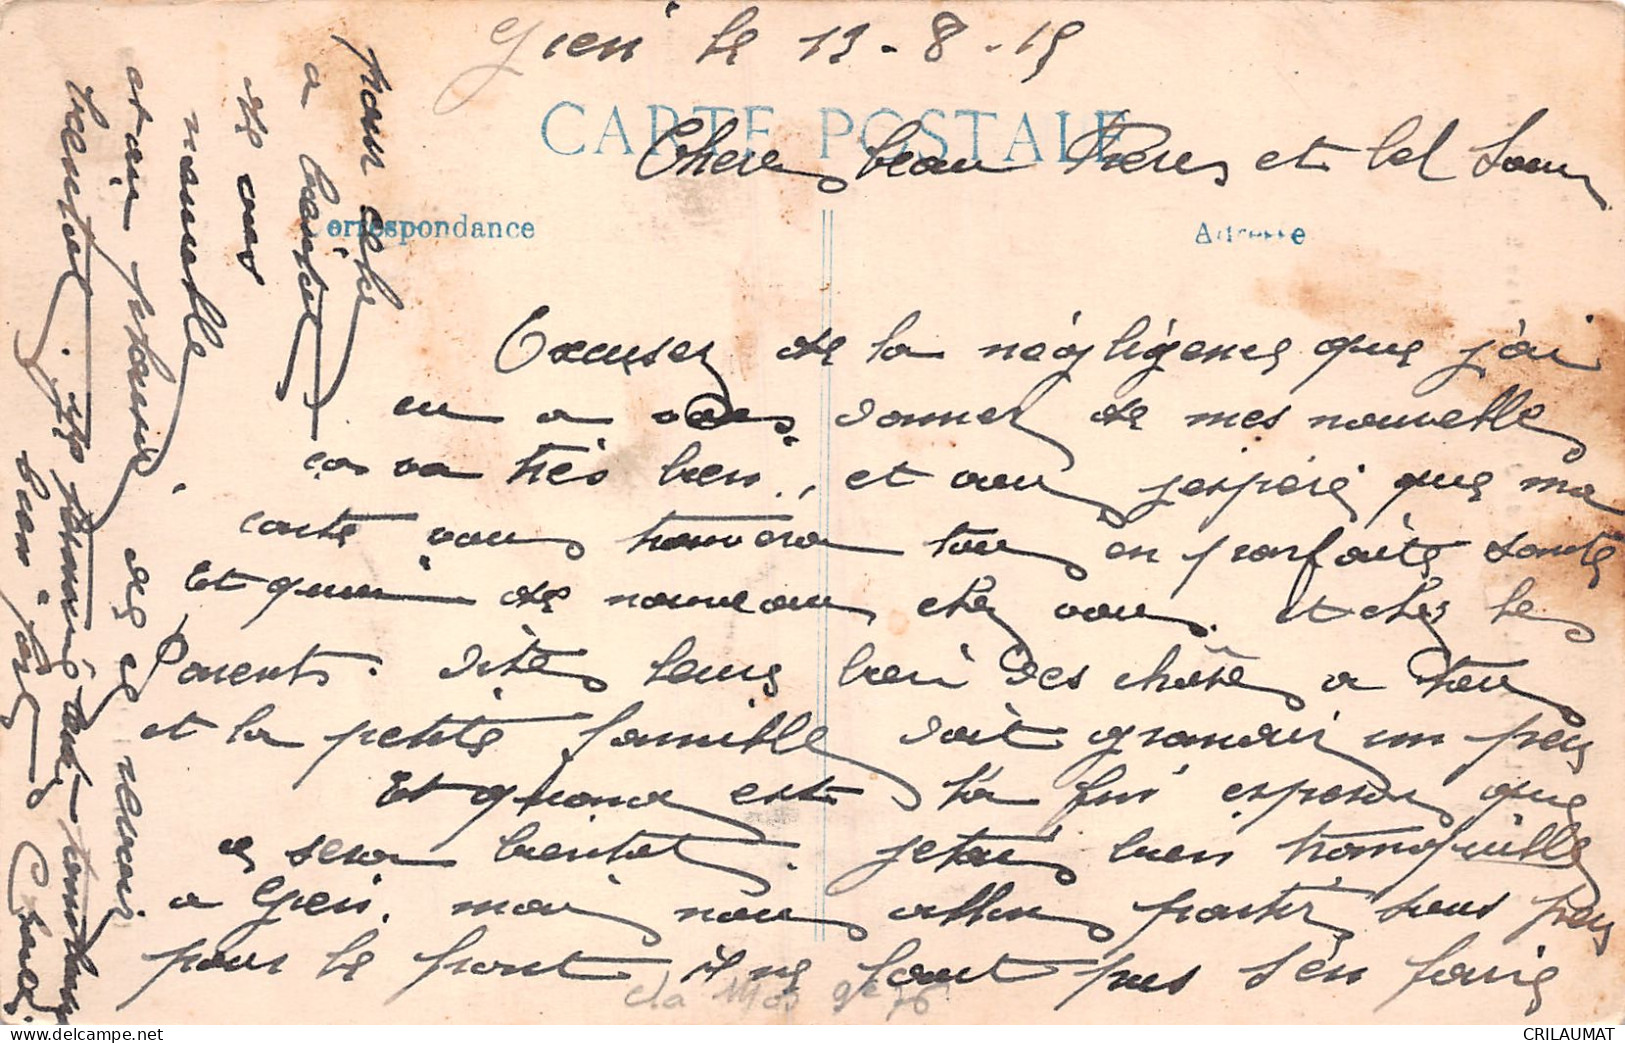 Gien le 13-8-15
CARTE POSTALE
Chere beau Freres et bel Soeur
Correspondance
Adresse
Excuser de la négligence que j'ai
eu a vous donner de mes nouvelle
ca va très bien, et vous j'espère que ma
carte vous trouvera tous en parfaite santé
Et quoi de nouveau chez vous. et chez les
Parents. dite leurs bien des chose a tous
et la petite famille doit grandir un peu
Et quand est la fin esperons que
ça sera bientot. jetai bien tranquille
a Gien. mai nous allons partir sous peu
pour le front il ne faut pas s'en faire
pour ske
a bientot
de vos
nouvelle
et au plaisir de ce revoir
bientot. je termine
bon
Cla 1903 9e 76
CRILAUMAT